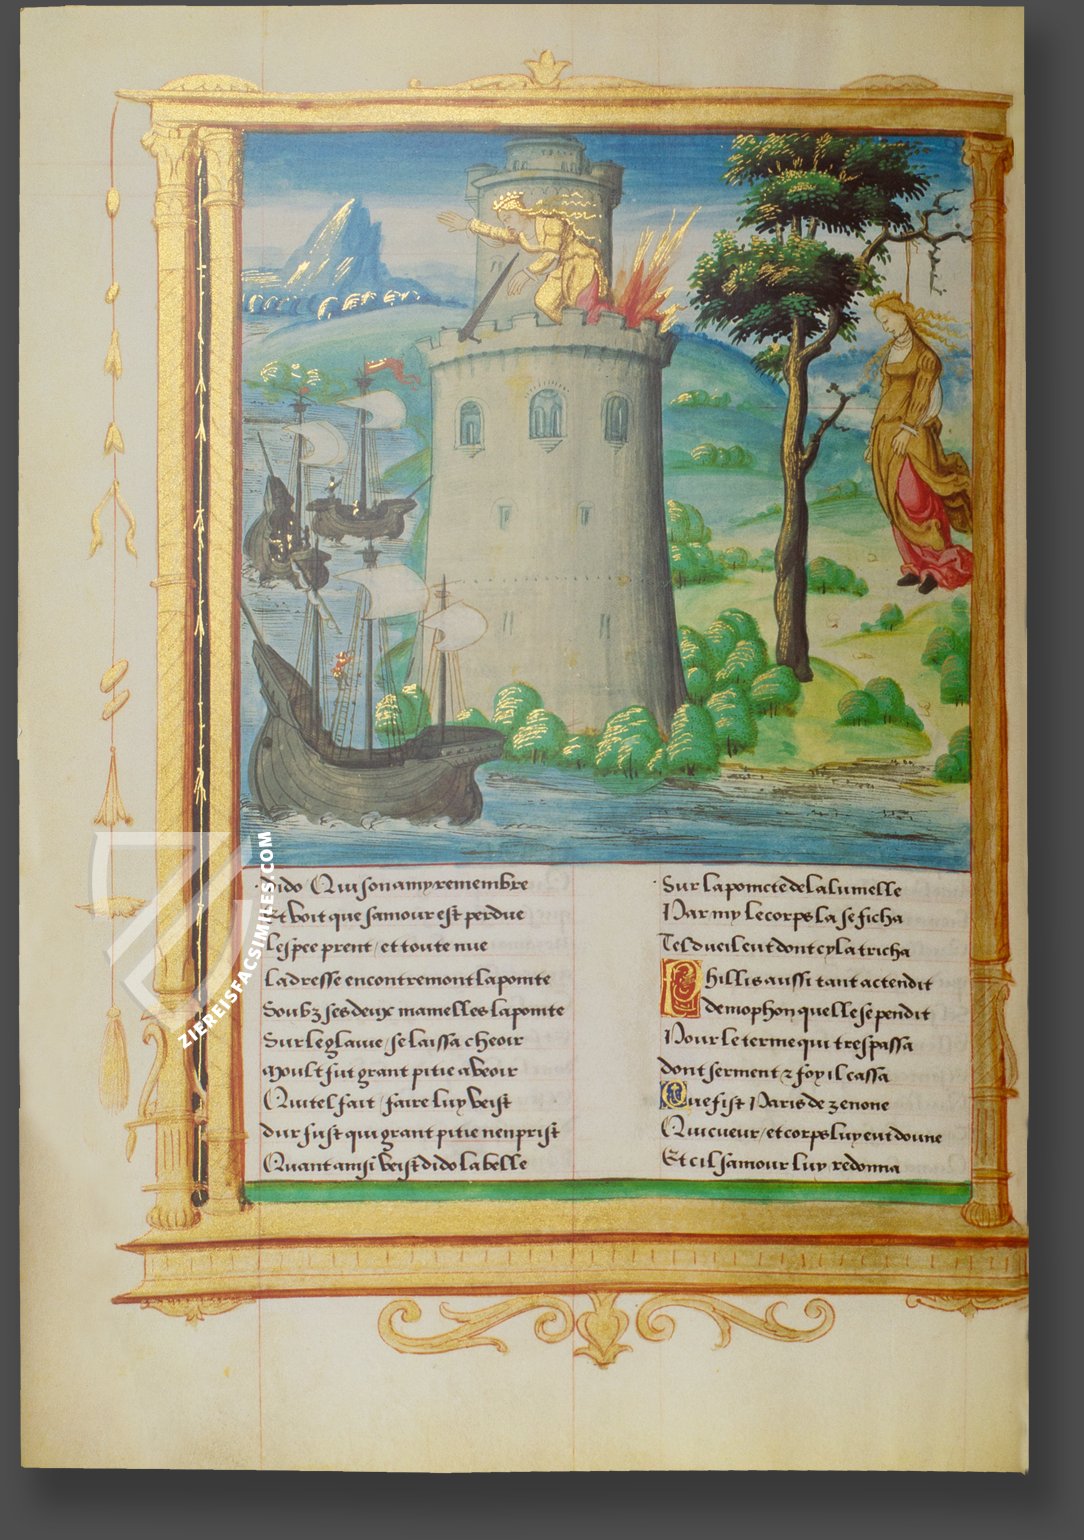 Dido Qui son amy remembre
Et voit que samour est perdue
lespee prent / et toute nue
Ladresse encontremont la pointe
Soubz ses deux mamelles la pointe
Sur le glaiue / se laissa cheoir
Moult fut grant pitie a veoir
Qui tel fait / faire luy veist
dur fust qui grant pitie nen prist
Quant ainsi veist dido la belle
Sur la poincte de la lumelle
Par my le corps la se ficha
Tel dueil eut dont cy la tricha
Phillis aussi tant actendit
demophon quelle se pendit
Pour le terme qui trespassa
dont serment & foy il cassa
Que fist Paris de zenone
Qui cueur / et corps luy eut donne
Et cil samour luy redonna
ZIEREISFACSIMILES.COM